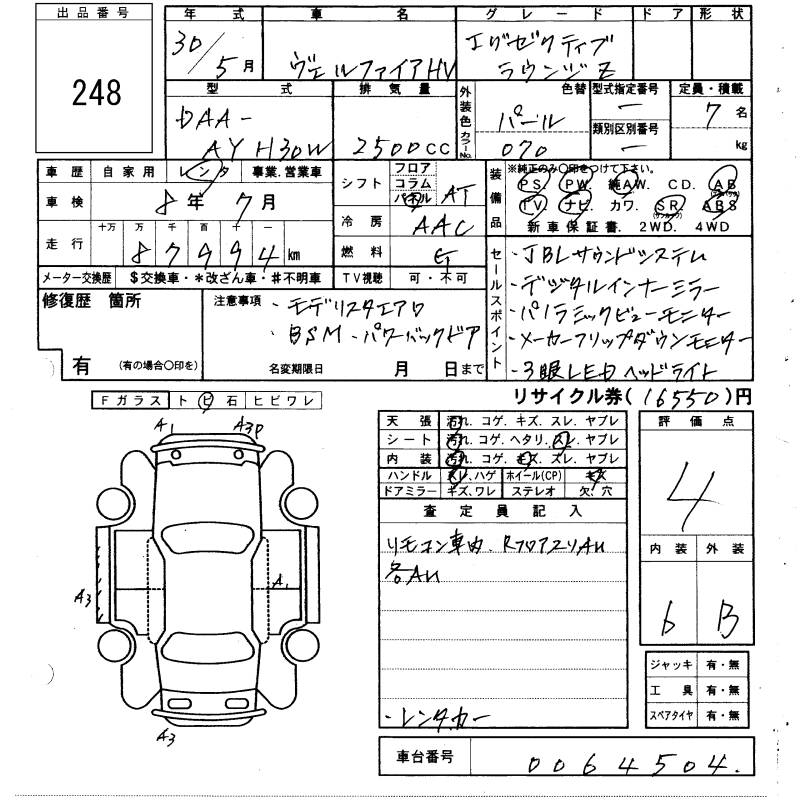 出品番号
248
年式 車名 グレード ドア 形状
30/5月 ヴェルファイアHV エグゼクティブラウンジZ
型式 排気量 外装色 色替 型式指定番号 定員・積載
DAA-AYH30W 2500CC パール カラーNo. 070 ー 7名
類別区別番号 ー kg
車歴 自家用 レンタ 事業.営業車
車検 8年 7月
走行 十万 万 千 百 十 一
87994km
メーター交換歴 $交換車・*改ざん車・#不明車
シフト フロア コラム パネル AT
冷房 AAC
燃料 G
TV視聴 可・不可
装備品 ※純正のみ〇印をつけて下さい。
PS PW. 純AW. CD. AB
TV ナビ. カワ. SR. ABS
新車保証書. 2WD. 4WD
セールスポイント
・JBLサウンドシステム
・デジタルインナーミラー
・パノラミックビューモニター
・メーカーフリップダウンモニター
・3眼LEDヘッドライト
修復歴 箇所
有 (有の場合〇印を)
注意事項
・モデリスタエアロ
・BSM・パワーバックドア
名変期限日 月 日まで
リサイクル券(16550)円
Fガラス トビ石 ヒビワレ
A1 A3P
A3 A1
A3
天張 汚れ. コゲ. キズ. スレ. ヤブレ
シート 汚れ. コゲ. ヘタリ. スレ. ヤブレ
内装 汚れ. コゲ. キズ. スレ. ヤブレ
ハンドル スレ、ハゲ ホイール(CP) キズ
ドアミラー キズ、ワレ ステレオ 欠、穴
査定員記入
リモコン車内. RフロアスリAU
各AU
・レンタカー
評価点
4
内装 外装
6 B
ジャッキ 有・無
工具 有・無
スペアタイヤ 有・無
車台番号 0064504.